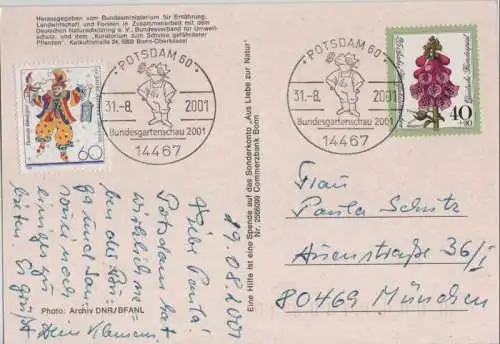 Herausgegeben vom Bundesministerium für Ernährung,
Landwirtschaft und Forsten in Zusammenarbeit mit dem
Deutschen Naturschutzring e.V., Bundesverband für Umwelt-
schutz und dem „Kuratorium zum Schutze gefährdeter
Pflanzen“, Kalkuhlstraße 24, 5300 Bonn-Oberkassel
60
POTSDAM 60
31.-8. 2001
Bundesgartenschau 2001
14467
POTSDAM 60
31.-8. 2001
Bundesgartenschau 2001
14467
Deutsche Bundespost
40
Eine Hilfe ist eine Spende auf das Sonderkonto „Aus Liebe zur Natur“
Nr. 2566099 Commerzbank Bonn
19.08.2001
Liebe Paula!
Potsdam hat
wirklich
Es grüßt
Dein Klemens
Photo: Archiv DNR/BFANL
Frau
Paula Schütz
36/I
80469 München